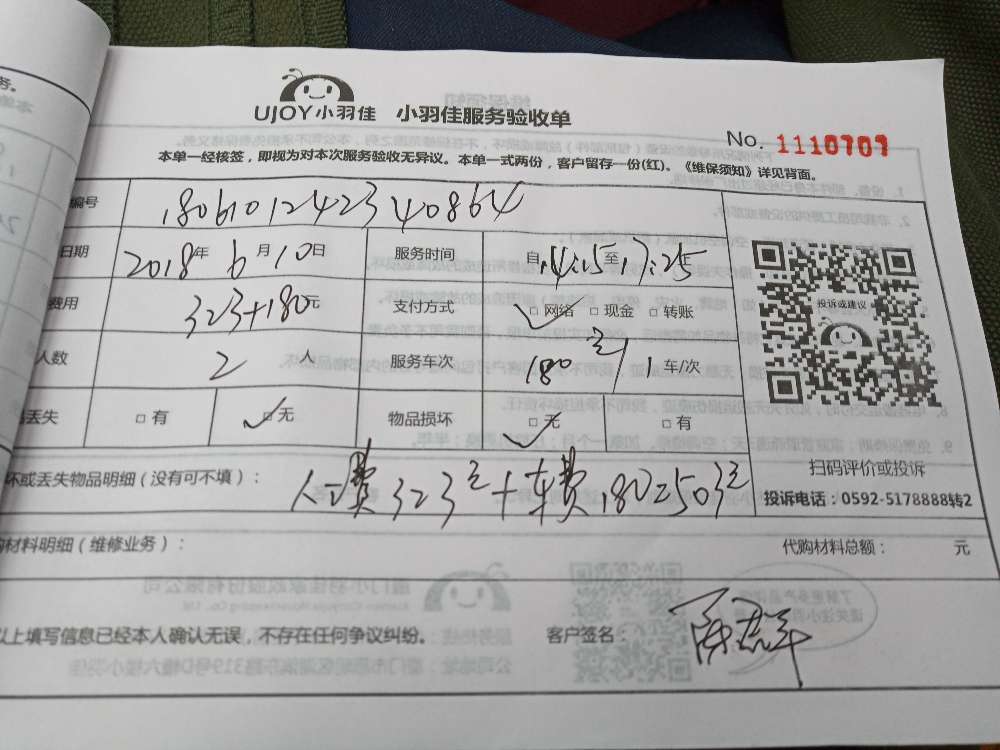 UJOY小羽佳 小羽佳服务验收单
No. 1110709
本单一经核签，即视为对本次服务验收无异议。本单一式两份，客户留存一份(红)。《维保须知》详见背面。
编号 1806101242340864
日期 2018年6月10日 服务时间 自14:15至17:25
费用 323+180元 支付方式 □网络 □现金 □转账
人数 2人 服务车次 180元/1车/次
丢失 □有 □无 物品损坏 □无 □有
投诉或建议
扫码评价或投诉
坏或丢失物品明细（没有可不填）： 323元+车费180=503元
投诉电话：0592-5178888转2
购材料明细（维修业务）： 代购材料总额： 元
以上填写信息已经本人确认无误，不存在任何争议纠纷。 客户签名：